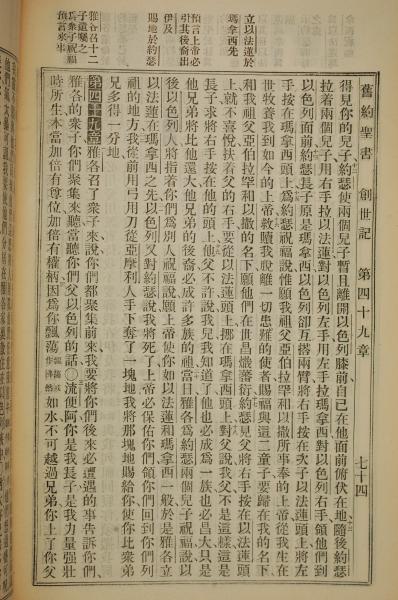 舊約聖書 創世記 第四十九章 七十四
得見你的兒子約瑟使兩個兒子暫且離開以色列膝前自己在他面前俯伏在地隨後約瑟
拉着兩個兒子用右手拉以法蓮對以色列左手用左手拉瑪拿西對以色列右手領他們到
以色列面前約瑟長子原是瑪拿西以色列卻互搭兩臂將右手按在次子以法蓮頭上將左
手按在瑪拿西頭上爲約瑟祝福說惟願我祖父亞伯拉罕和以撒所事奉的上帝從我生在
世牧養我到如今的上帝救贖我脫離一切患難的使者賜福與這二童子要歸在我的名下
和我祖父亞伯拉罕和以撒的名下願他們在世昌熾蕃衍約瑟見父將右手按在以法蓮頭
上就不喜悅扶着父的右手要從以法蓮頭上挪在瑪拿西頭上對父說我父不是這樣這是
長子求將右手按在他的頭上他父不許說我兒我知道了他也必成爲一族也必昌大只是
他兄弟將比他還大他兄弟的後裔必成許多族的祖當日雅各爲約瑟兩個兒子祝福說以
後以色列人將指着你們爲別人祝福說願上帝使你如以法蓮和瑪拿西一般於是雅各立
以法蓮在瑪拿西之先以色列又對約瑟說我將死了上帝必保佑你們領你們回到你們列
祖的地方我從前用弓用刀從亞摩利人手下奪了一塊地我將那塊地賜給你使你比衆弟
兄多得一分地
第四十九章 雅各召了衆子來說你們都聚集前來我要將你們後來必遭遇的事告訴你們
雅各的衆子你們聚集來聽當聽你們父以色列的話〇流便阿你是我長子是我力量强壯
時所生本當加倍有尊位加倍有權柄因爲你飄蕩如水不可越過兄弟你上了你父
立以法蓮於
瑪拿西先
預言上帝必
引其後裔出
伊及
賜地於約瑟
雅各召十二
子遺囑之
爲衆子祝福
預言來事